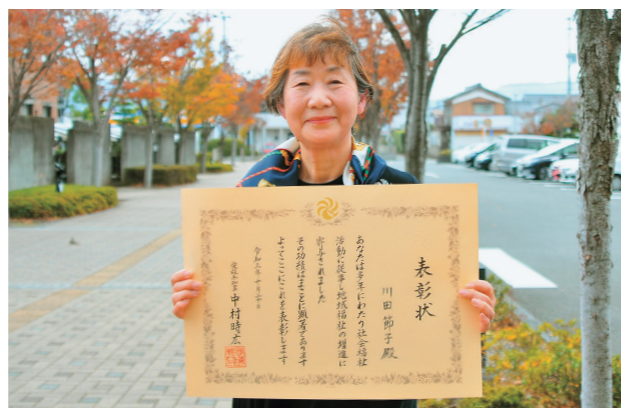 表彰状
川田節子殿
あなたは多年にわたり社会福祉
活動に従事し地域福祉の増進に
寄与されました
その功績はまことに顕著であります
よってここにこれを表彰します
令和三年十月
中村時広